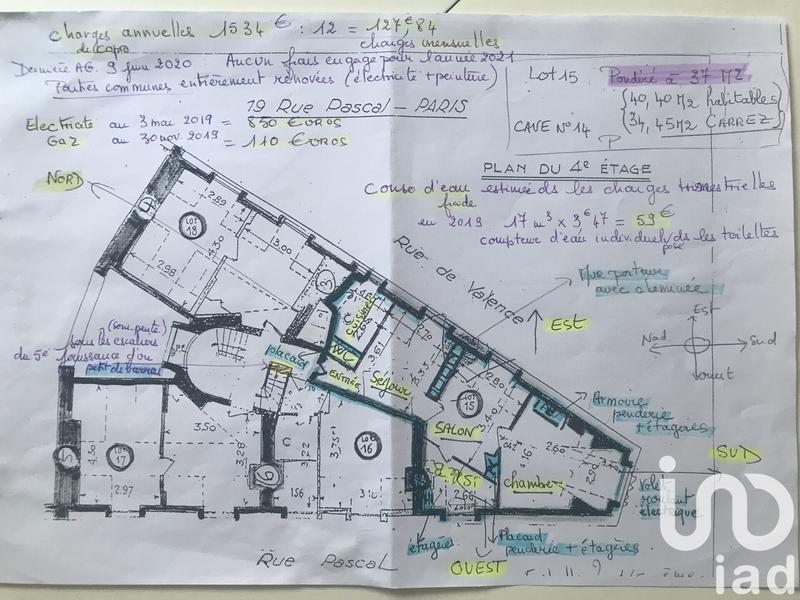 Charges annuelles 1534 € : 12 = 127€,84
de copro charges mensuelles
Dernière AG. 9 juin 2020 : Aucun frais engagé pour l'année 2021
Toutes communes entièrement rénovées (électricité + peinture)
LOT 15 Pondéré à 37 M2
40,40 M2 habitables
CAVE N° 14 34,45 M2 CARREZ
19 Rue Pascal - PARIS
Electricité au 3 mai 2019 = 850 EUROS
Gaz au 30 nov. 2019 = 110 EUROS
PLAN DU 4e ÉTAGE
Conso d'eau estimée ds les charges trimestrielles
froide
en 2019 17 m3 x 3€47 = 59€
compteur d'eau individuel ds les toilettes
posé
NORD
LOT 18
2.89
4.30
3.00
2.98
Rue de Valence
Mur porteur
avec cheminée
EST
Est
Nord Sud
Ouest
(sous pente)
sous les escaliers
du 5e jouissance d'un
petit débarras
placard
C
cuisine
WC
ENTRÉE
3.61
Séjour
5.35
2.80
LOT 15
SALON
Armoire
penderie
+ étagères
SUD
chambre
4.16
2.60
Volet
roulant
électrique
3.50
4.50
LOT 17
2.97
3.28
C
3.22
156
LOT 16
2.66
étagères
Placard
penderie + étagères
OUEST
Rue Pascal
iad